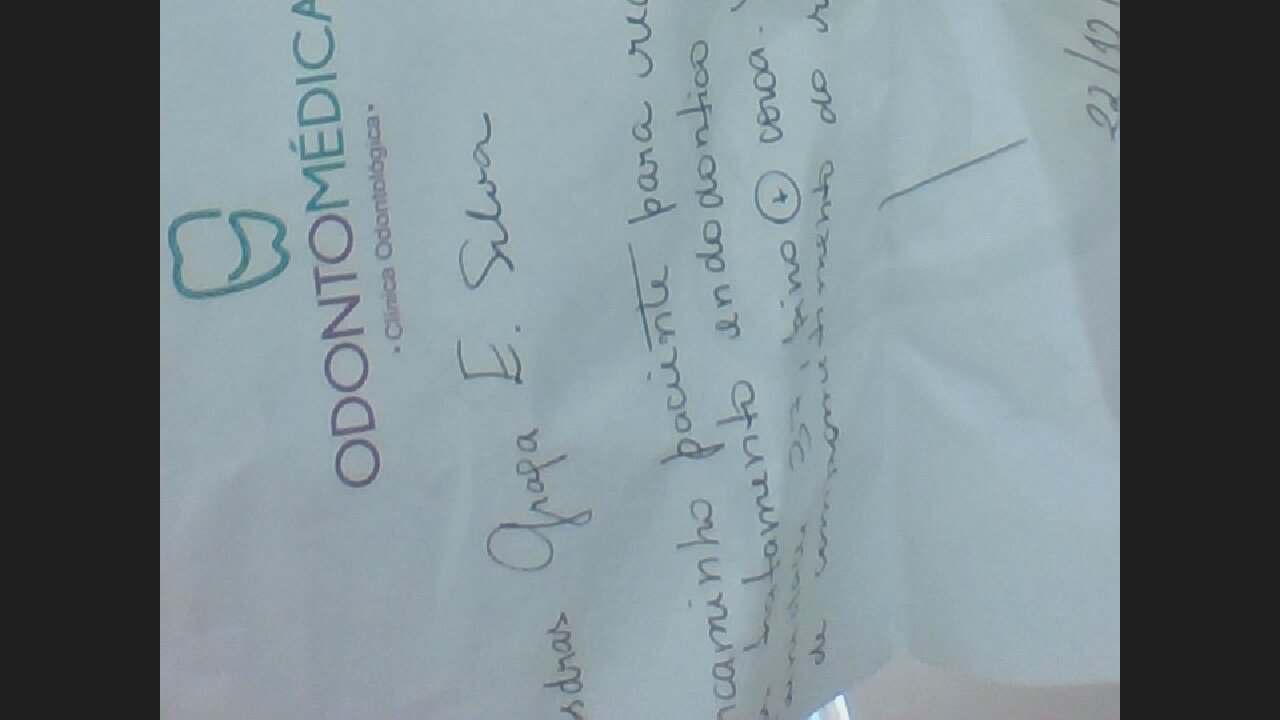 ODONTOMÉDICA
• Clínica Odontológica •
sdras Graça E. Silva
ncaminho paciente para rea
tratamento endodontico
37, pino + coroa.
de comprometimento do r
22/12/